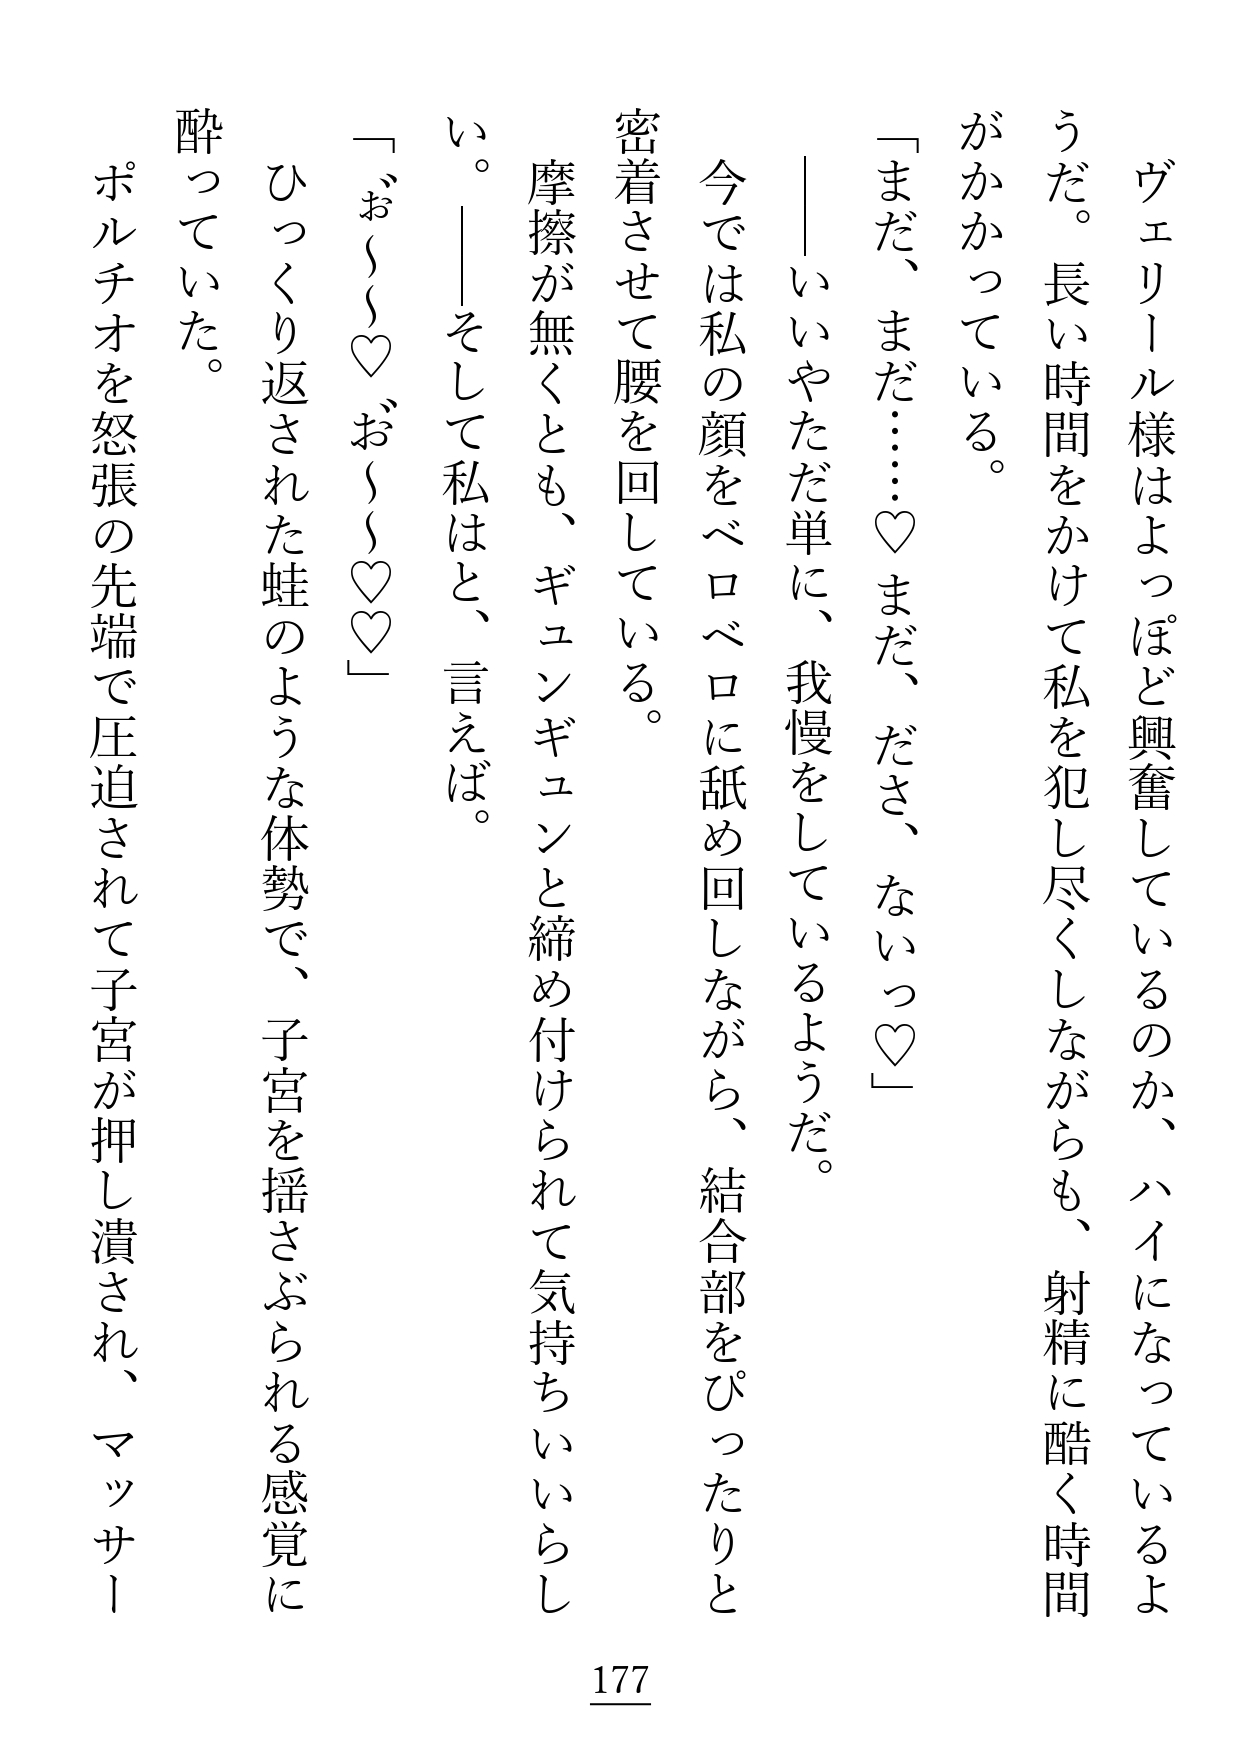 ヴェリール様はよっぽど興奮しているのか、ハイになっているよ
うだ。長い時間をかけて私を犯し尽くしながらも、射精に酷く時間
がかかっている。
「まだ、まだ……♡まだ、ださ、ないっ♡」
――いいやただ単に、我慢をしているようだ。
今では私の顔をベロベロに舐め回しながら、結合部をぴったりと
密着させて腰を回している。
摩擦が無くとも、ギュンギュンと締め付けられて気持ちいいらし
い。――そして私はと、言えば。
「゛ぉ〜〜♡゛お〜〜♡♡」
ひっくり返された蛙のような体勢で、子宮を揺さぶられる感覚に
酔っていた。
ポルチオを怒張の先端で圧迫されて子宮が押し潰され、マッサー
177